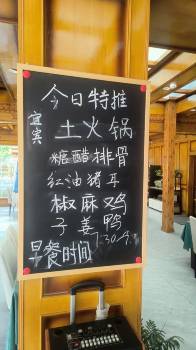 今日特推
宜宾
土火锅
糖醋排骨
红油猪耳
椒麻鸡
子姜鸭
早餐时间